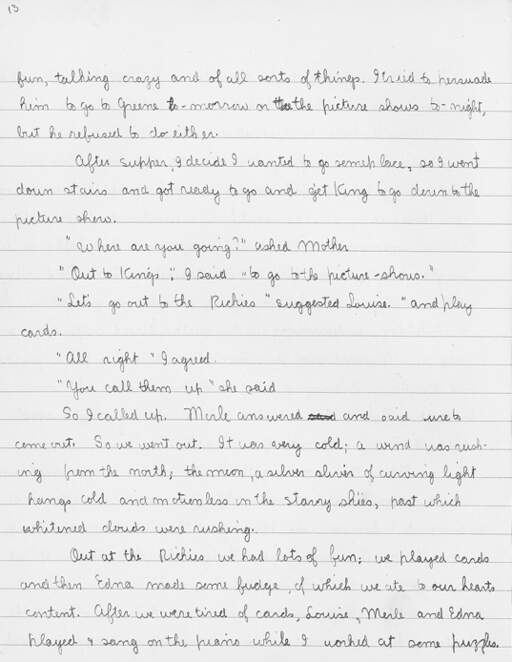 13
fun, talking crazy and of all sorts of things. I tried to persuade
him to go to Greene to-morrow or to the picture shows to-night,
but he refused to do either.
After supper, I decide I wanted to go someplace, so I went
down stairs and got ready to go and get King to go down to the
picture show.
"Where are you going?" asked Mother
"Out to King's", I said "to go to the picture-shows."
"Let's go out to the Richies" suggested Louise. "and play
cards.
"All right" I agreed.
"You call them up" she said
So I called up. Merle answered and said we to
come out. So we went out. It was very cold; a wind was rush-
ing from the north; the moon, a silver sliver of curving light
hangs cold and motionless in the starry skies, past which
whitened clouds were rushing.
Out at the Richies we had lots of fun; we played cards
and then Edna made some fudge, of which we ate to our hearts
content. After we were tired of cards, Louise, Merle and Edna
played & sang on the piano while I worked at some puzzles.